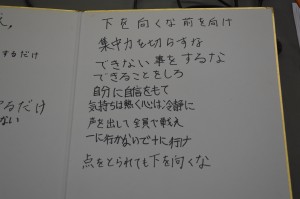 下を向くな 前を向け
集中力を切らすな
できない事をするな
できることをしろ
自分に自信をもて
気持ちは熱く心は冷静に
声を出して全員で戦え
一に行かないで十に行け
点をとられても下を向くな
え,
するだけ
るだけ
ない